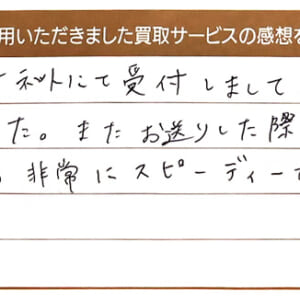 用いただきました買取サービスの感想を
ネットにて受付しまして
た。またお送りした際
非常にスピーディーで